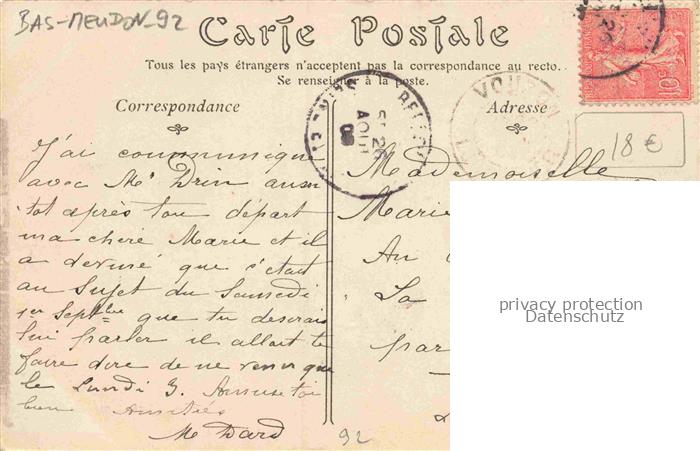 BAS-MEUDON-92
Carte Postale
Tous les pays étrangers n'acceptent pas la correspondance au recto.
Se renseigner à la poste.
Correspondance
Adresse
26
AOUT
10c
18€
J'ai communiqué
avec Mr Drin aussi
tot après ton départ
ma chere Marie et il
a deviné que c'etait
au sujet du Samedi
1er Septbre que tu desirais
lui parler il allait te
faire dire de ne venir que
le Lundi 3. Amuse toi
bien Amitiés
M Dard
Mademoiselle
Marie
Au
La
par
92
privacy protection
Datenschutz